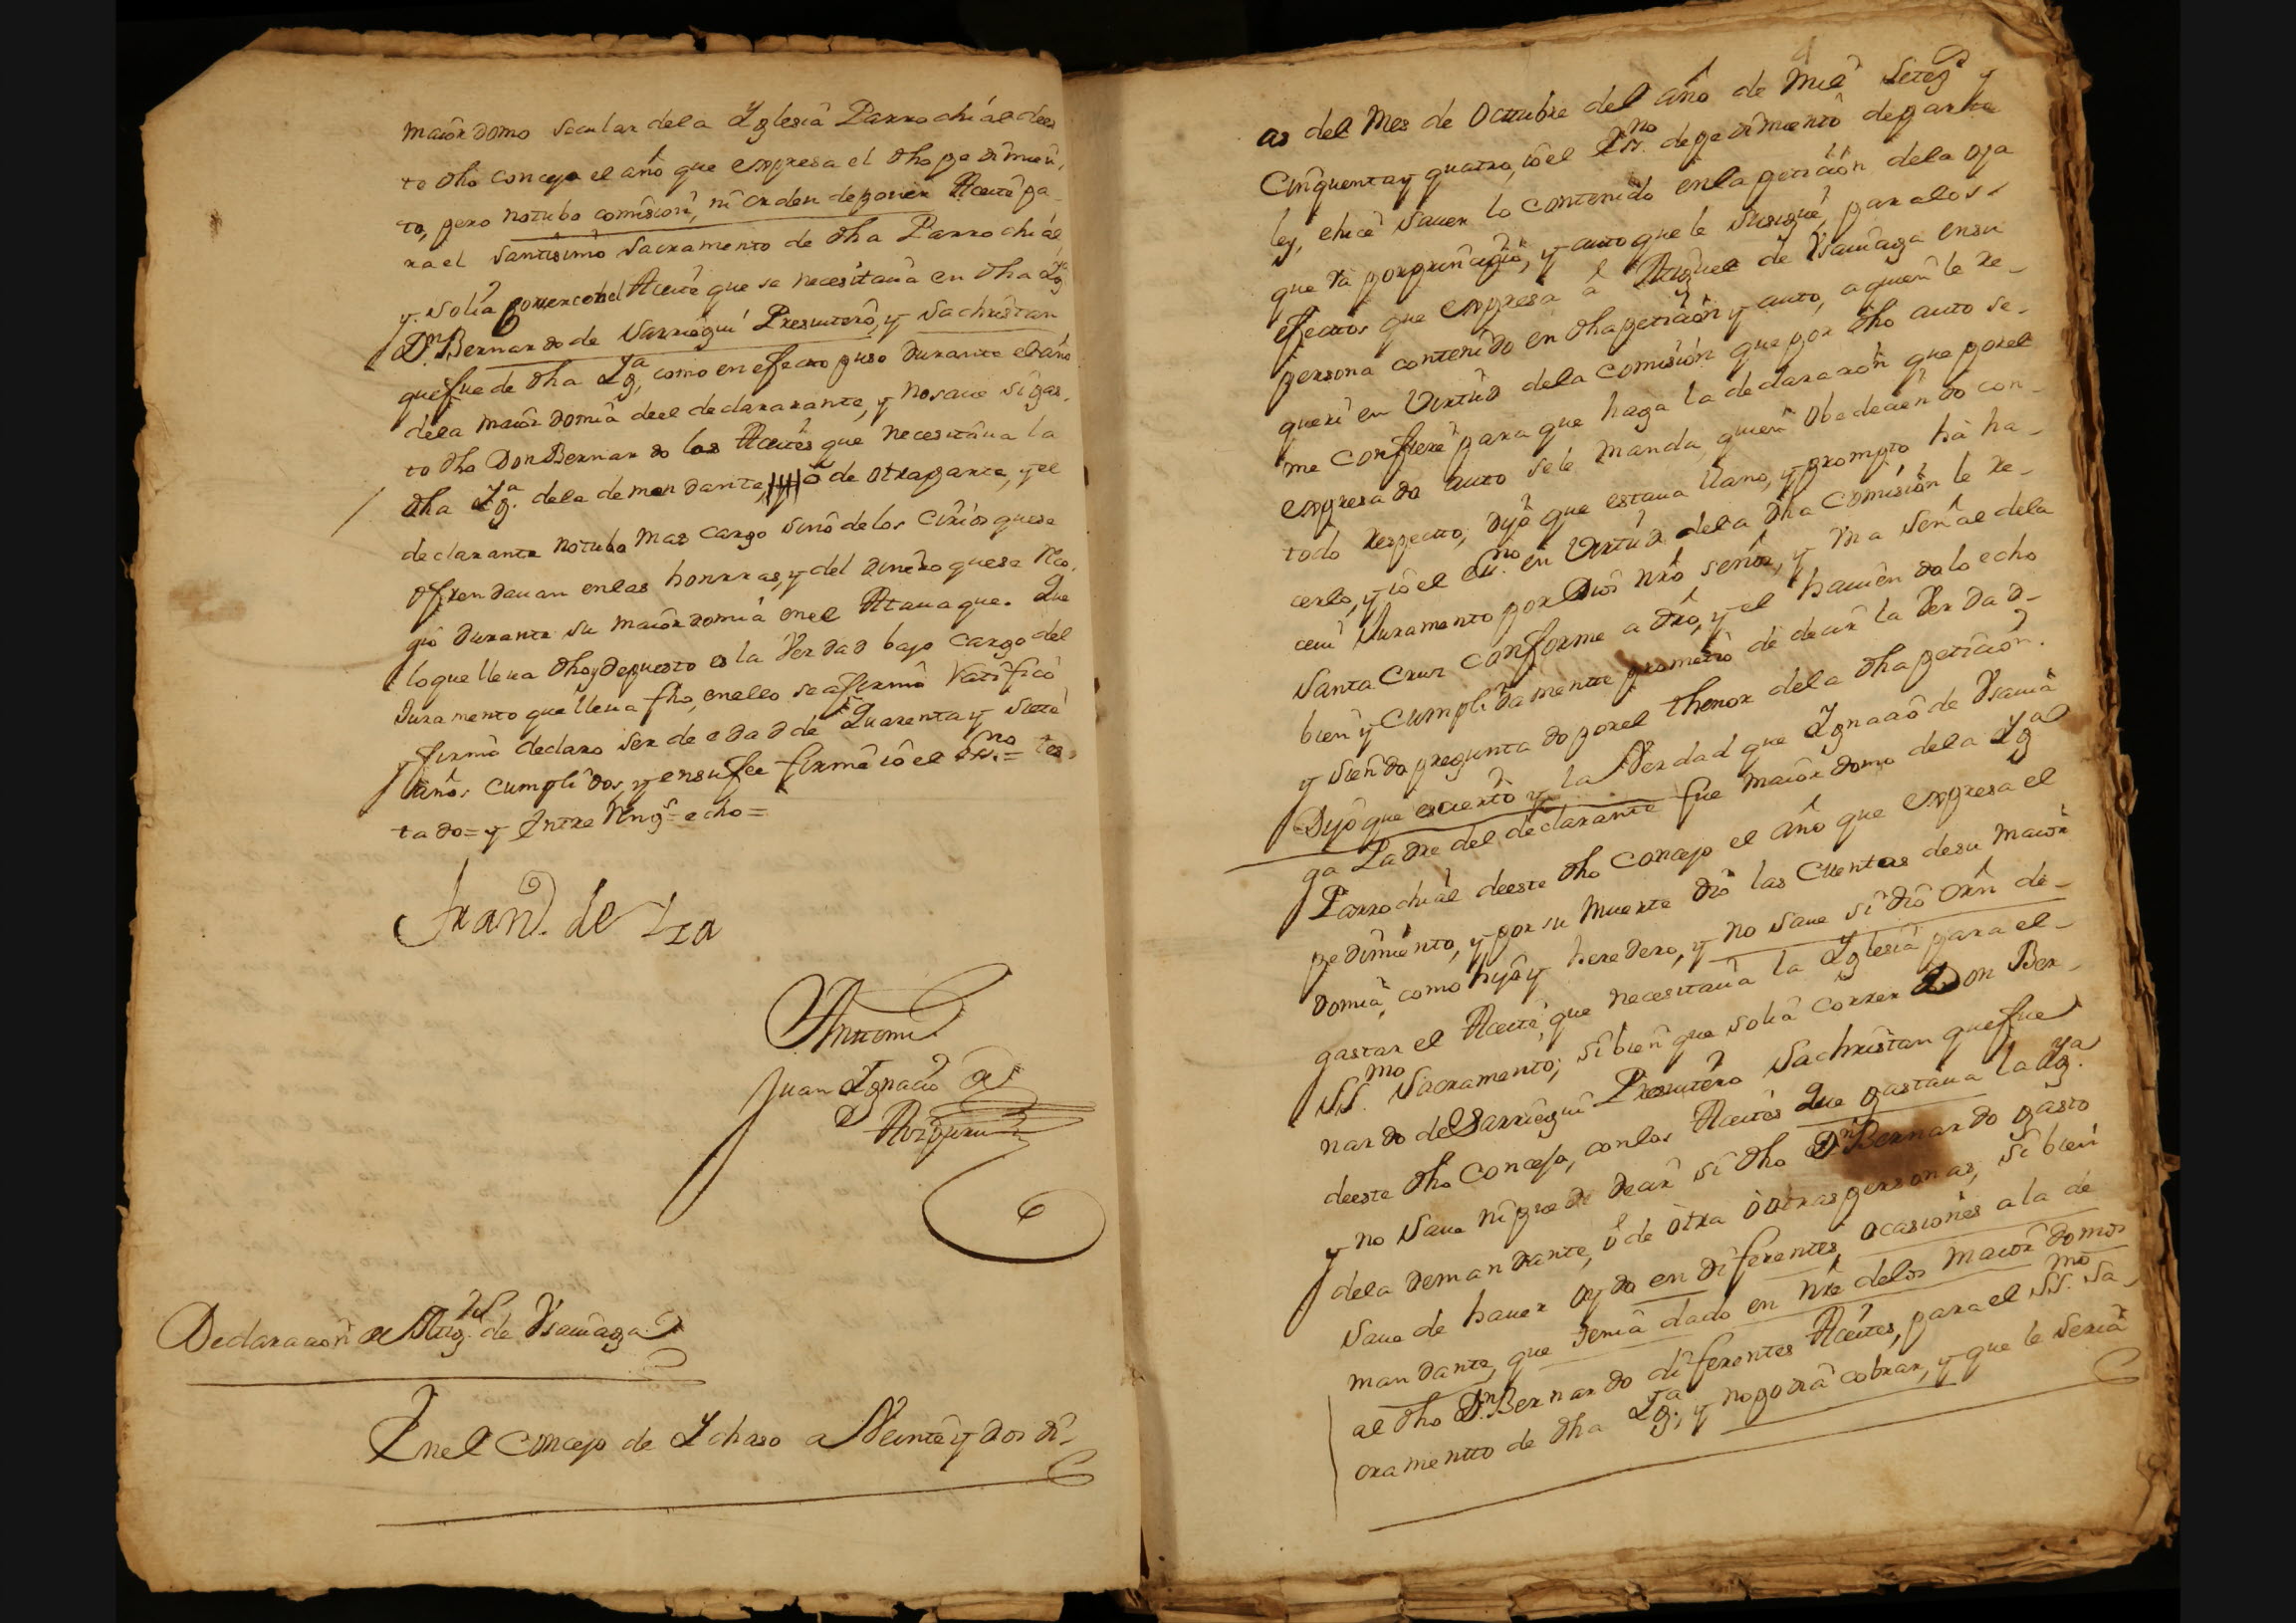 maiordomo secular dela Yglesia Parrochial dees
te dho concejo el año que expresa el dho pedimien,
to, pero notubo comision, ni orden deponer Aceite pa-
ra el Santisimo Sacramento de dha Parrochial
y solia correr con el Aceite que se necesitaua en dha Yg.ª
D.n Bernardo de Sarriegui Presuitero, y Sachristan
quefue de dha Yg.ª, como en efecto puso durante el año
dela maiordomia deel declarante, y nosaue si gas-
to dho Don Bernardo los Aceites que necesitaua la
dha Yg.ª dela demandante, o de otraparte, y el
declarante notubo mas cargo sino delos cirios quese
ofrendauan enlas honrras, y del dinero quese Reco,
gio durante su maiordomia enel Atauaque. Que
loque lleua dho y depuesto es la Verdad bajo cargo del
Juramento que lleua fho, enello se afirmo Ratifico
y firmo declaro ser de edad de Quarenta y siete
años cumplidos, y ensufee firme io el Ss.no = tes,
tado = y Entre Reng.s = echo =
Fran.co de
Antemi
Juan Ignacio de
Declaracion de Mig.l de Vsauiaga
Enel Concejo de Ychaso a Veinte y dos di-
4
as del Mes de Octtubre del año de Mil Seteз.s y
Cinquenta y quatro, io el Ess.no depedimiento departe
ley, ehice sauer lo contenido enla peticion dela oja
que va porprincipio, y auto que le sisigue, paralos
efectos que expresa â Miguel de Vsauiaga ensu
persona contenido en dhapeticion y auto, aquien le re-
queri en Virtud dela comision que por dho auto se-
me confiere para que haga la declarazon que porel
expresado auto sele manda, quien obedeciendo con-
todo respecto, dijo que estaua llano, y prompto hà ha-
cerlo, y io el Es.no en Virtud dela dha comision le re-
ceui Juramento por Dios nrô señor, y vna señal dela
Santa Cruz conforme a drô, y el hauiendolo echo
bien y cumplidamentte prometio de decir la Verdad-
y siendo preguntado porel thenor dela dhapeticion.
Dijo que escierto y la Verdad que Ygnacio de Vsauia
ga Padre del declarante fue maiordomo dela Yg.ª
Parrochial deeste dho concejo el año que expresa el
pedimiento, y por su muerte dio las cuentas desu maior
domia, como hijo y heredero, y no saue si dio orn de-
gastar el Aceite, que necesitaua la Yglesia para el-
SS.mo Sacramento; si bien que solia correr Don Ber-
nardo de Sarriegui Presuitero Sachristan quefue
deeste dho Concejo, conlos Aceites Que gastaua la Yg.ª
y no saue ni puede decir si dho D.n Bernardo gasto
dela demandante, ô de otra ô otras personas, si bien
saue de hauer oydo en diferentes ocasiones ala de
mandante, que tenia dado en nrê delos maiordomos
al dho D.n Bernardo diferentes Aceites, para el SS.mo Sa-
cramentto de dha Yg.ª, y nopodia cobrar, y que le seria